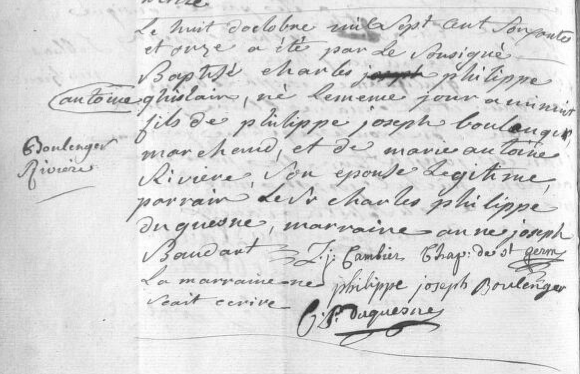 Le huit d'octobre mil sept cent soixante
et onze a été par Le Soussigné
Baptisé charles joseph philippe
antoine ghislain, né Lememe jour a minuit
fils de philippe joseph boulenger
marchand, et de marie antoine
Boulenger
Riviere
Riviere, son epouse Legitime,
parrain Le Sr charles philippe
duquesne, marraine anne joseph
Baudart J: j: Cambier Chap: de St germ
La marraine ne philippe joseph Boulenger
scait ecrire C: P: duquesne